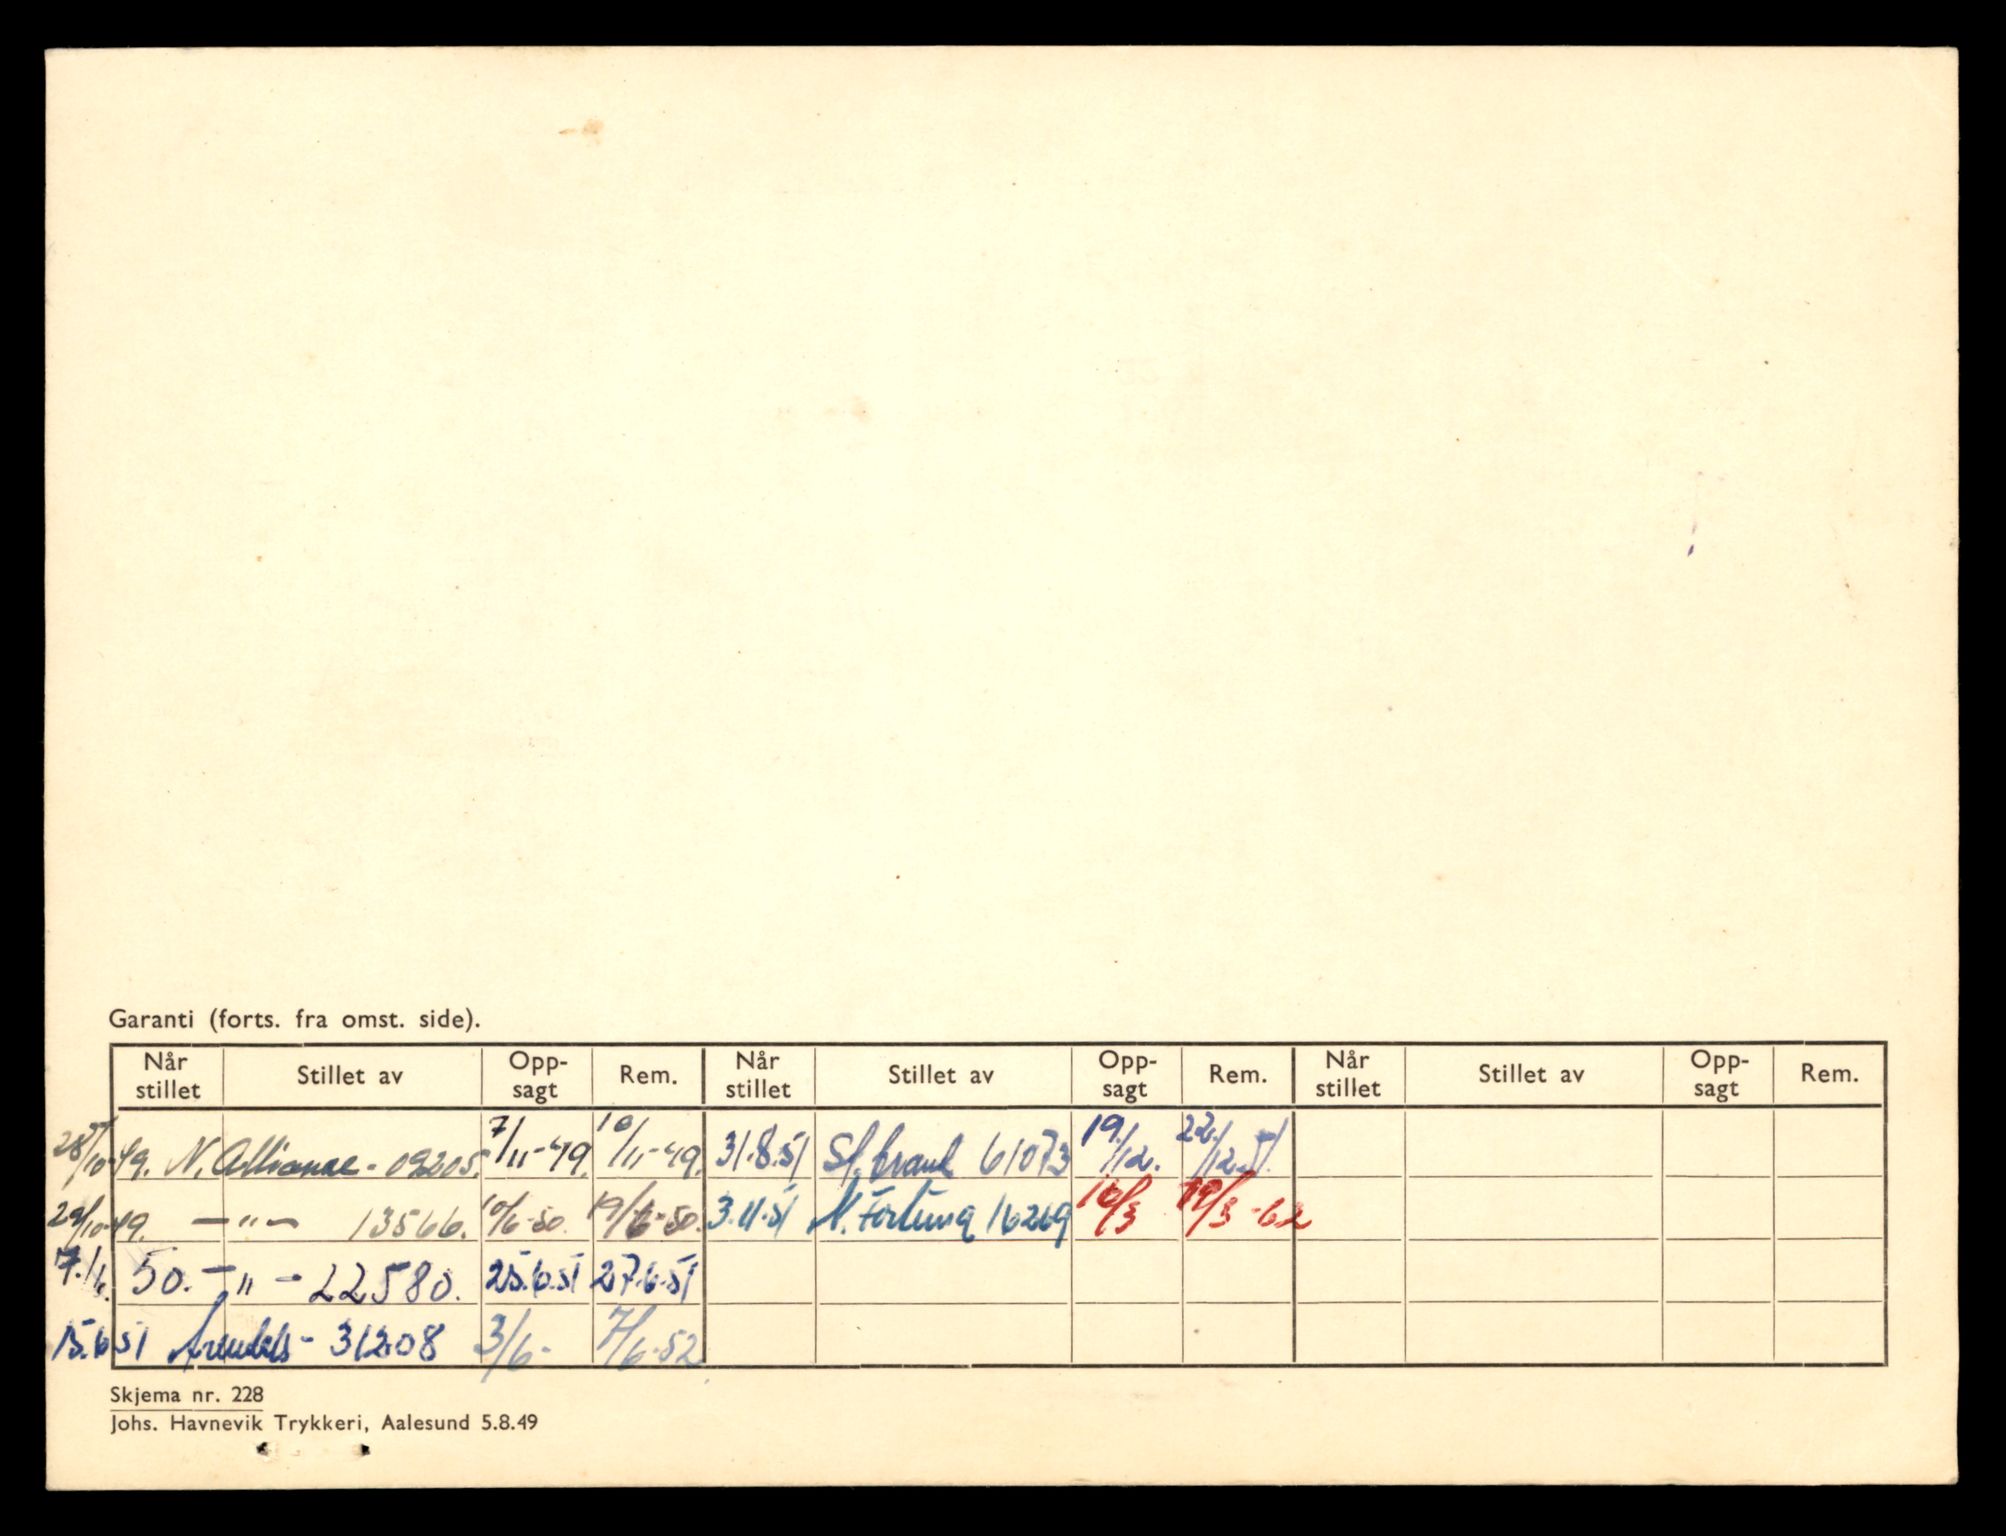 Garanti (forts. fra omst. side).
Når stillet Stillet av Opp-sagt Rem. Når stillet Stillet av Opp-sagt Rem. Når stillet Stillet av Opp-sagt Rem.
28/10-49. N. Alliance - 09205. 7/11-49. 10/11-49. 31.8.51 61073 19./12. 22./12.51.
29/10-49. -"- 13566. 10/6-50. 19/6-50. 3.11.51 N. Fortuna 16269 16/3 29/3-62
17./6. 50. -"- 22580. 25.6.51 27.6.51
15.6.51 - 31208 3/6- 7/6-52
Skjema nr. 228
Johs. Havnevik Trykkeri, Aalesund 5.8.49